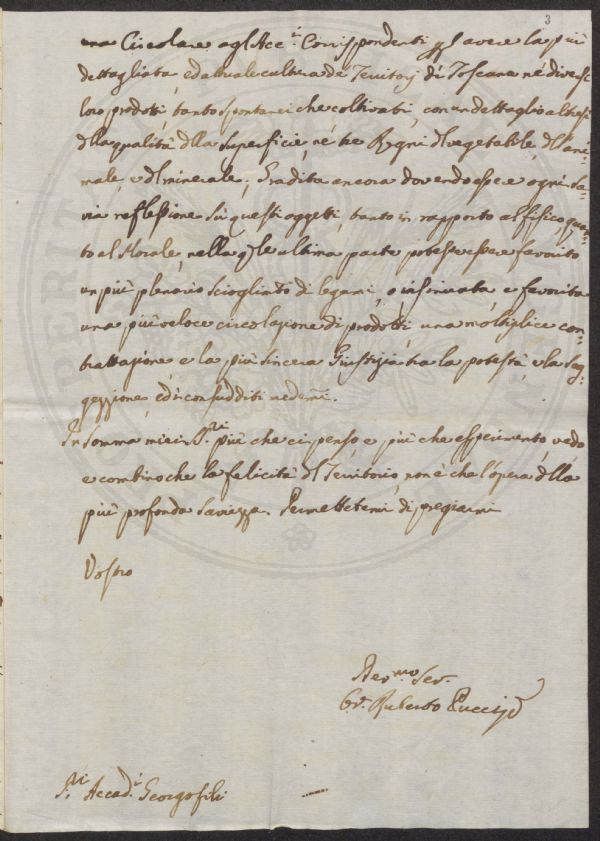 3
una Circolare agl'Acc.i Corrispondenti p avere la più
dettagliata, ed attuale cultura de' Territorj di Toscana ne' diversi
loro prodotti, tanto spontanei che coltivati, con un dettaglio altresì
della qualità della superficie, ne' tre Regni del vegetabile, dell'ani-
male, e del minerale; Gradita ancora dovendo essere ogni sa-
via reflessione su questi oggetti, tanto in rapporto al fisico, quan-
to al Morale, nella qle ultima parte potess'essere favorito
un più plenario scioglimto di legami, o insinuata e favorita
una più veloce circolazione di prodotti, una moltiplice con-
trattazione e la più sincera Giustizia tra la potestà, e la sog-
gezzione, ed i consudditi medemi.
In somma miei S.ri più che ci penso e più che esperimento, vedo
e combino che la felicità del Territorio, non è che l'opera della
più profonda saviezza. Permettetemi di pregiarmi
Vostro
Dev.mo Ser.
Cav. Ruberto Pucci
S.ri Accad.i Georgofili